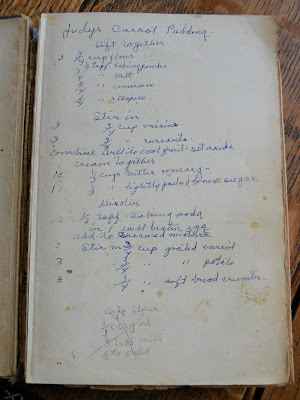 Judys Carrot Pudding.
Sift together
3 3/4 cup flour
1/2 tsp baking powder
" salt
" cinnamon
" allspice
Stir in
3 3/4 cup raisins
3 3/4 " currants
Combine well to coat fruit - set aside
Cream together
1/3 cup butter or marg -
" lightly packed brown sugar
Dissolve
1/2 tsp baking soda
in 1 well beaten egg
add to creamed mixture
Stir in 3/4 cup grated carrot
3 3/4 " " potato
3 3/4 " soft bread crumbs.
cup flour
salt